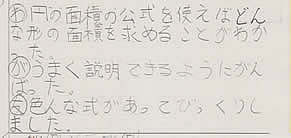 わ円の面積の公式を使えばどん
な形の面積を求めることがわか
た。
がうまく説明できるようにがん
ばった。
友色んな式があってびっくりし
ました。